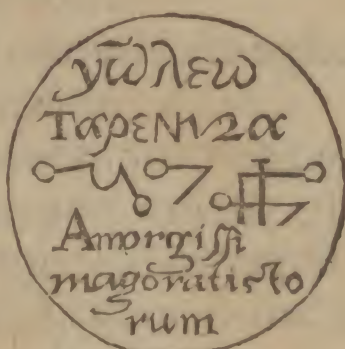 γῶλεω
ΤαρΕΝν2α
Amorgissi
magoratisto
rum